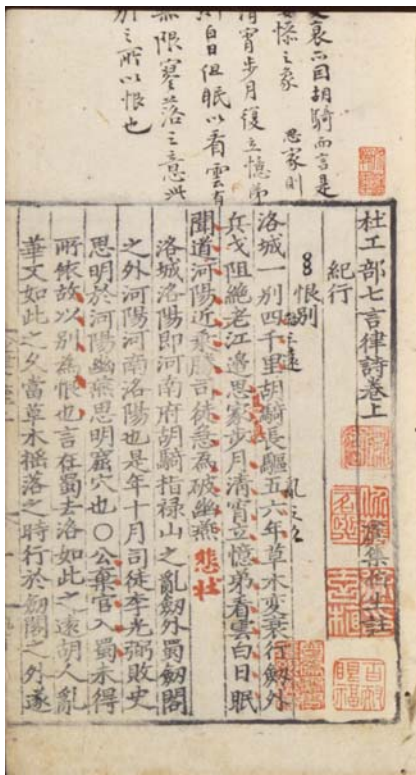 衰而因胡騎而言是
惨之象 思家則
清宵步月復立憶弟
則白日但眠以看雲有
無限寥落之意此
別之所以恨也
杜工部七言律詩卷上
虞集伯生註
紀行
恨別
洛城一別四千里胡騎長驅五六年草木變衰行劒外
兵戈阻絶老江邊思家步月清宵立憶弟看雲白日眠
聞道河陽近乘勝司徒急為破幽燕 悲壮
洛城洛陽即河南府胡騎指禄山之亂劒外蜀劒閣
之外河陽河南洛陽也是年十月司徒李光弼敗史
思明於河陽幽燕思明窟穴也〇公棄官入蜀未得
所依故以別為恨也言在蜀去洛如此之遠胡人亂
華又如此之久當草木揺落之時行於劒閣之外遂